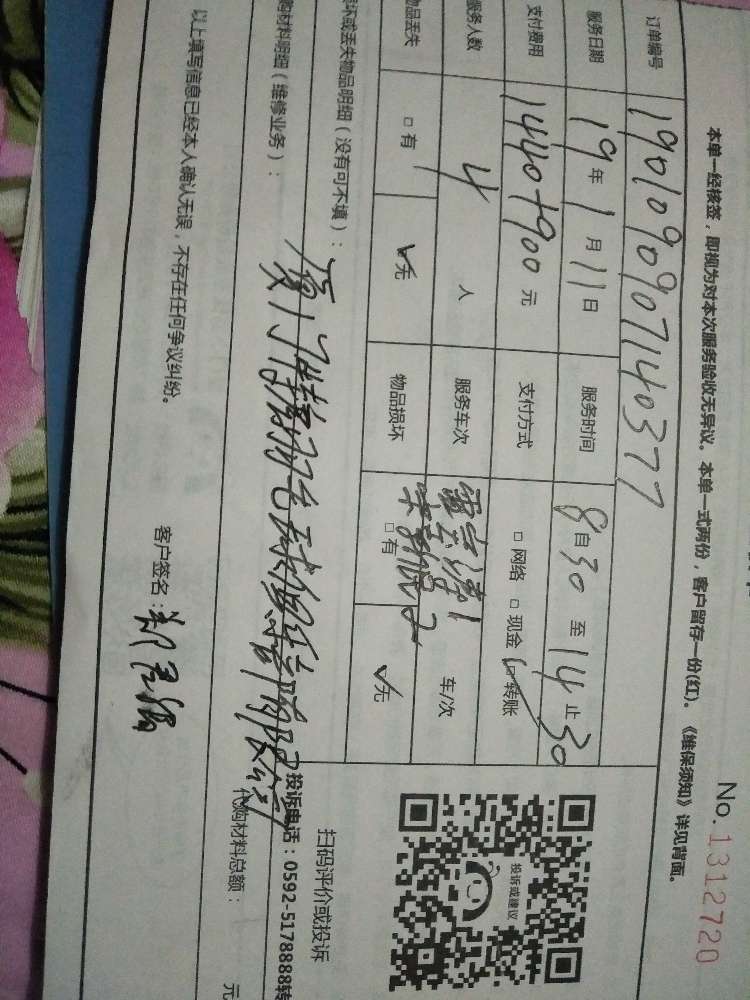 No.1312720
本单一经核签，即视为对本次服务验收无异议。本单一式两份，客户留存一份(红)。《维保须知》详见背面。
订单编号 1901090907140377
服务日期 19年1月11日 服务时间 8自30至14止30
支付费用 1440+900元 支付方式 □网络 □现金 ☑转账
服务人数 4人 服务车次 1 2 车/次
物品丢失 □有 ☑无 物品损坏 □有 ☑无
坏或丢失物品明细（没有可不填）：
购材料明细（维修业务）：
厦门
代购材料总额： 元
以上填写信息已经本人确认无误，不存在任何争议纠纷。
客户签名：
投诉或建议
扫码评价或投诉
投诉电话：0592-5178888转